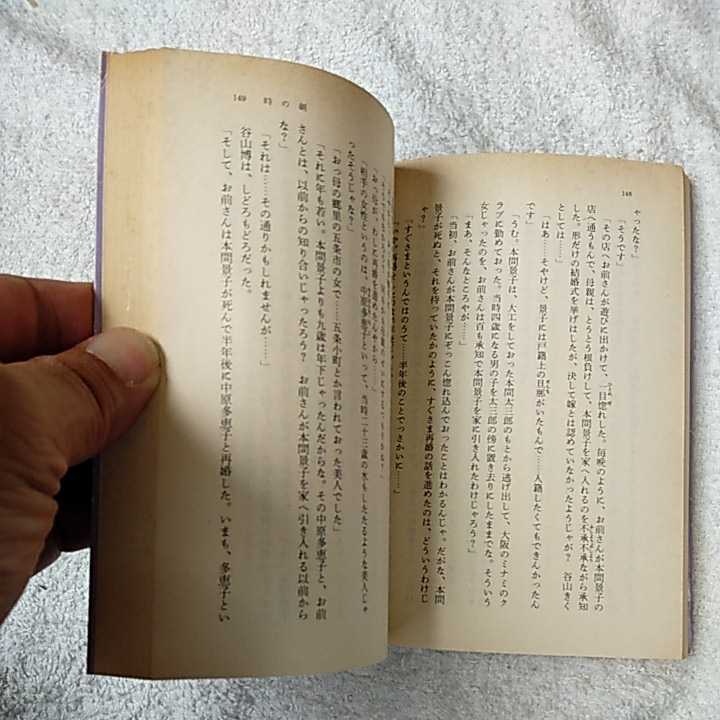 148
ゃったな？」
「そうです」
「その店へお前さんが遊びに出かけて、一目惚れした。毎晩のように、お前さんが本間景子の
店へ通うもんで、母親は、とうとう根負けして、本間景子を家へ入れるのを不承不承ながら承知
した。形だけの結婚式を挙げはしたが、決して嫁とは認めていなかったようじゃが？　谷山きく
としては」
「はあ……そやけど、景子には戸籍上の旦那がいたもんで……入籍したくてもできんかったん
「うむ。本間景子は、大工をしておった本間太三郎のもとから逃げ出して、大阪のミナミのク
ラブに勤めておった。当時四歳になる男の子を太三郎の傍に置き去りにしたままでな。そういう
女じゃったのを、お前さんは百も承知で本間景子を家に引き入れたわけじゃろう？」
「まあ、そんなところやが……」
「当初、お前さんが本間景子にぞっこん惚れ込んでおったことはわかるんじゃ。だがな、本間
景子が死ぬと、それを待っていたかのように、すぐさま再婚の話を進めたのは、どういうわけじ
ゃ？」
「すぐさまというんではのうて……半年後のことでっさかいに……」
149　時の
「お っ母が、わしに再婚を進めさんやから……」
「相手の女性というのは、中原多恵子といって、当時二十三歳の水もしたたるような美人じゃ
ったそうじゃな？」
「おっ母の郷里の五条市の女で……五条小町とか言われておった美人でした」
「それに年も若い。本間景子よりも九歳は年下じゃったんだからな。その中原多恵子と、お前
さんとは、以前からの知り合いじゃったろう？　お前さんが本間景子を家へ引き入れる以前から
な？」
「それは……その通りかもしれませんが……」
谷山博は、しどろもどろだった。
「そして、お前さんは本間景子が死んで半年後に中原多恵子と再婚した。いまも、多恵子とい